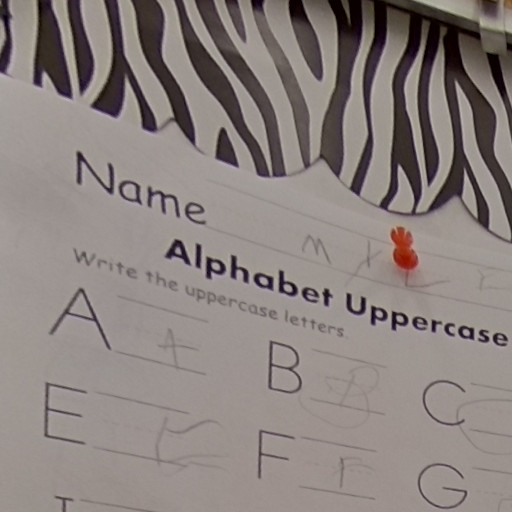 Name
Alphabet Uppercase
Write the uppercase letters.
A A B B C C
E E F F G
I